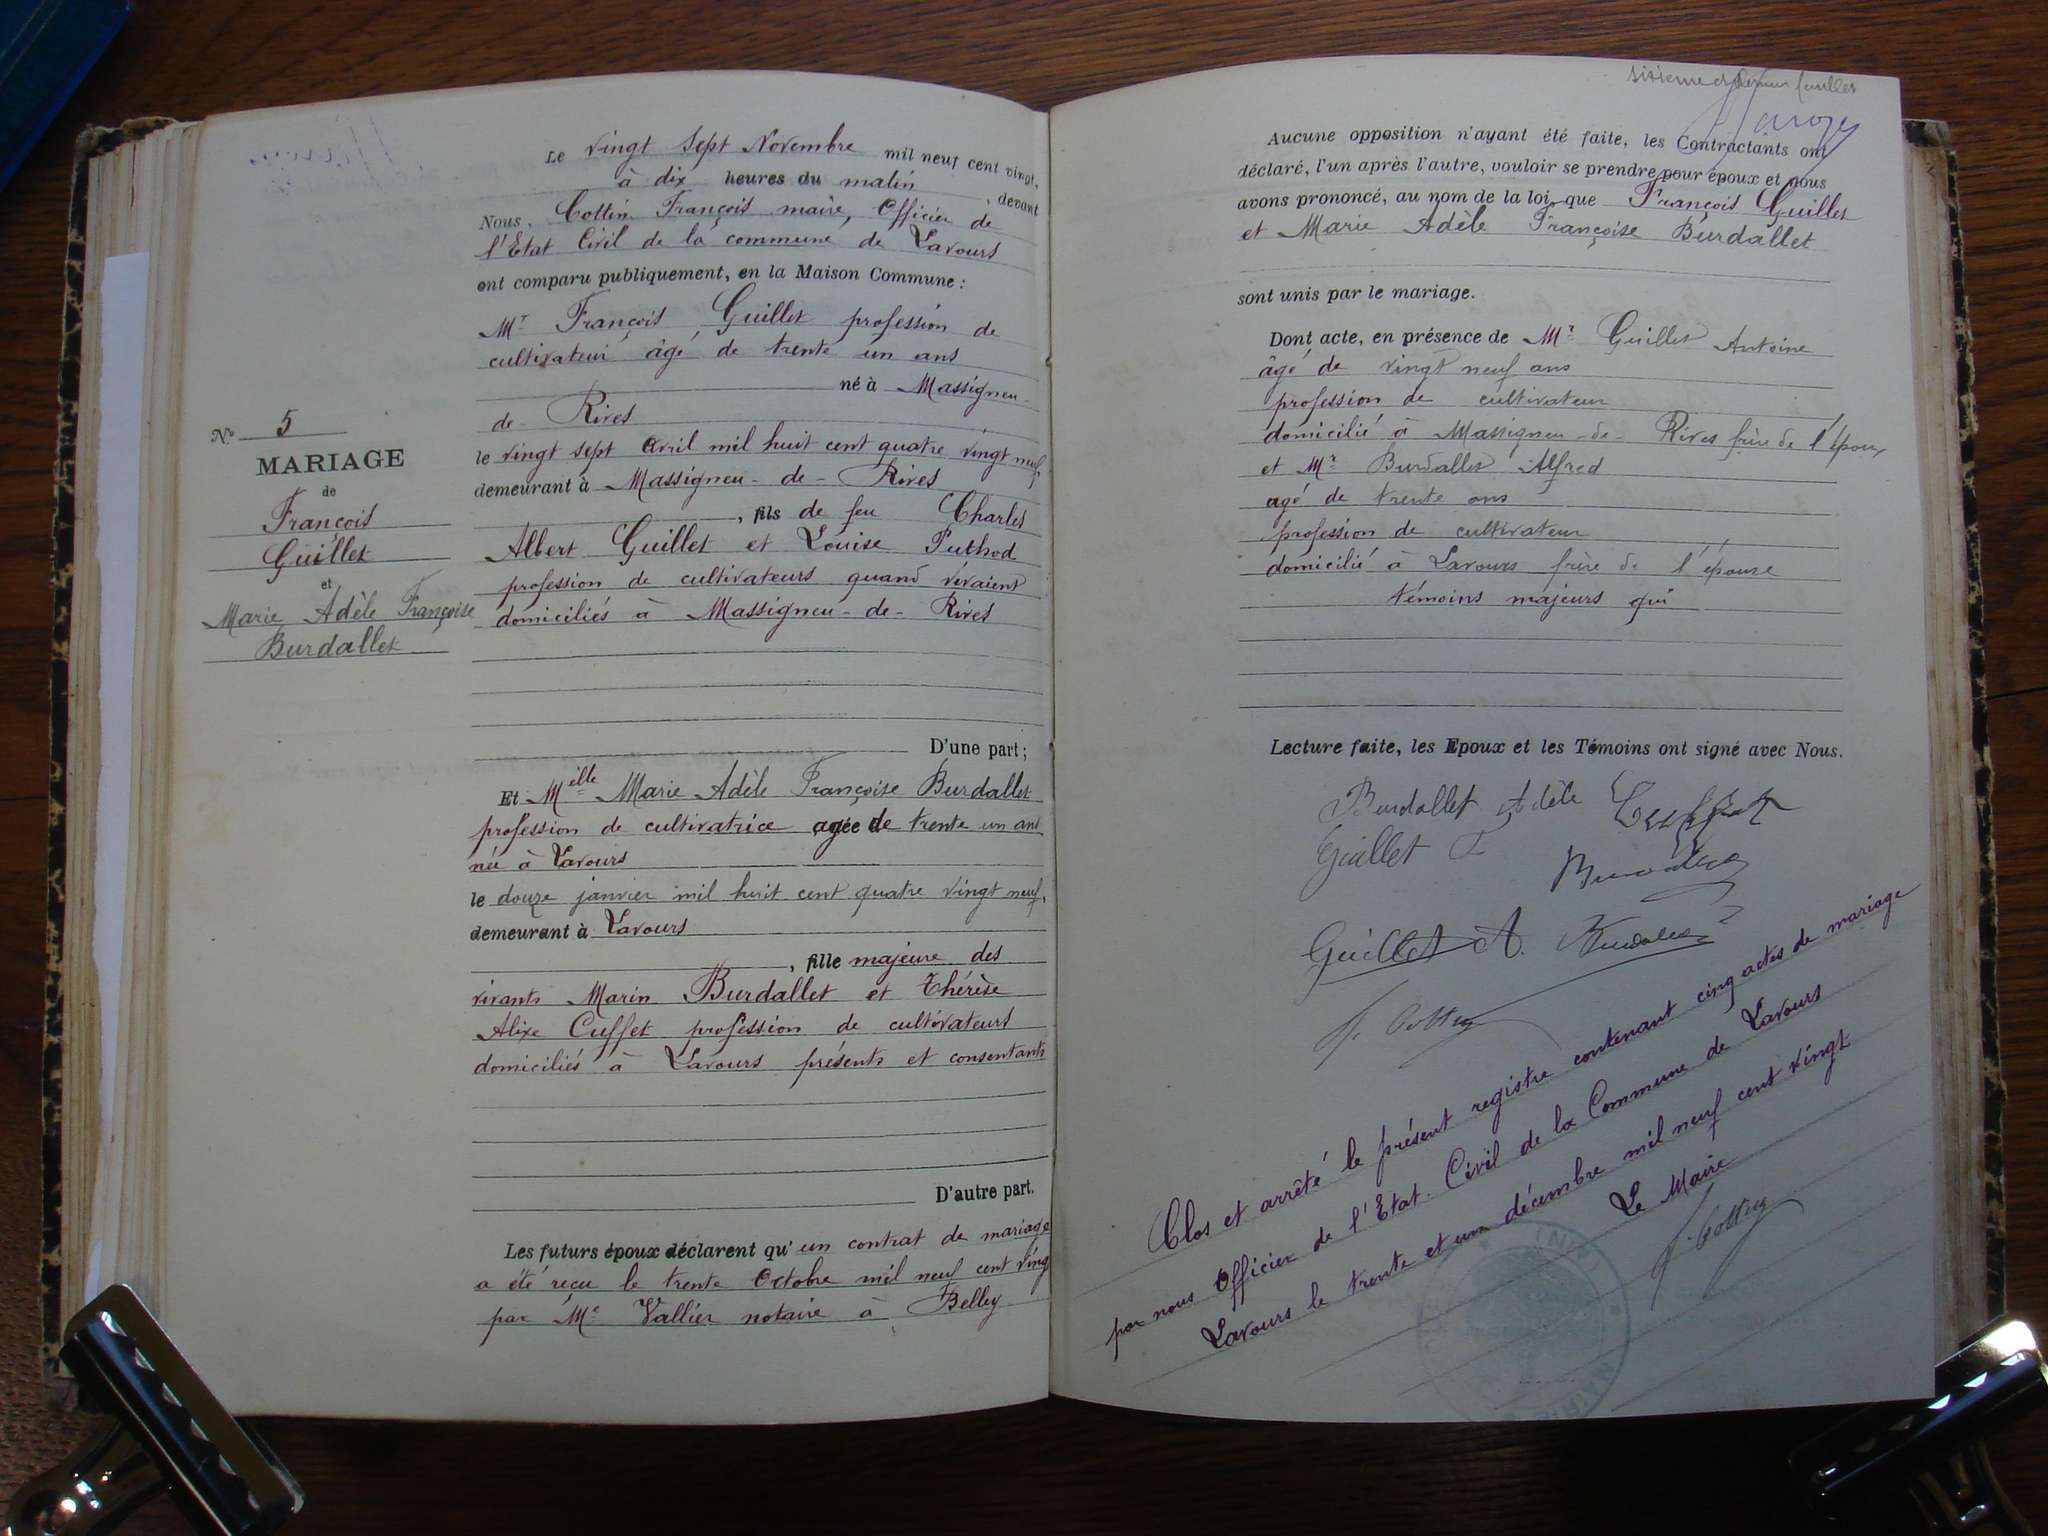 Le vingt sept Novembre mil neuf cent vingt,
à dix heures du matin, devant
Nous, Cottin François maire, Officier de
l'Etat Civil de la commune de Lavours
ont comparu publiquement, en la Maison Commune :
Mr François Guillet profession de
cultivateur âgé de trente un ans
né à Massigneu-
de-Rives
le vingt sept avril mil huit cent quatre vingt neuf,
demeurant à Massigneu-de-Rives
, fils de feu Charles
Albert Guillet et Louise Puthod
profession de cultivateurs quand vivaient
domiciliés à Massigneu-de-Rives
D'une part ;
No 5
MARIAGE
de
François
Guillet
et
Marie Adèle Françoise
Burdallet
Et Melle Marie Adèle Françoise Burdallet
profession de cultivatrice agée de trente un ans
née à Lavours
le douze janvier mil huit cent quatre vingt neuf,
demeurant à Lavours
, fille majeure des
vivants Marin Burdallet et Thérèse
Alixe Cuffet profession de cultivateurs
domiciliés à Lavours présents et consentants
D'autre part.
Les futurs époux déclarent qu'un contrat de mariage
a été reçu le trente Octobre mil neuf cent vingt
par Me Vallier notaire à Belley
sixième et dernier feuillet
Aucune opposition n'ayant été faite, les Contractants ont
déclaré, l'un après l'autre, vouloir se prendre pour époux et nous
avons prononcé, au nom de la loi, que François Guillet
et Marie Adèle Françoise Burdallet
sont unis par le mariage.
Dont acte, en présence de Mr Guillet Antoine
âgé de vingt neuf ans
profession de cultivateur
domicilié à Massigneu-de-Rives frère de l'époux
et Mr Burdallet Alfred
agé de trente ans
profession de cultivateur
domicilié à Lavours frère de l'épouse
témoins majeurs qui
Lecture faite, les Epoux et les Témoins ont signé avec Nous.
Burdallet Adèle
Guillet F
Guillet A.
F. Cottin
Clos et arrêté le présent registre contenant cinq actes de mariage
par nous Officier de l'Etat Civil de la Commune de Lavours
Lavours le trente et un décembre mil neuf cent vingt
Le Maire
F. Cottin